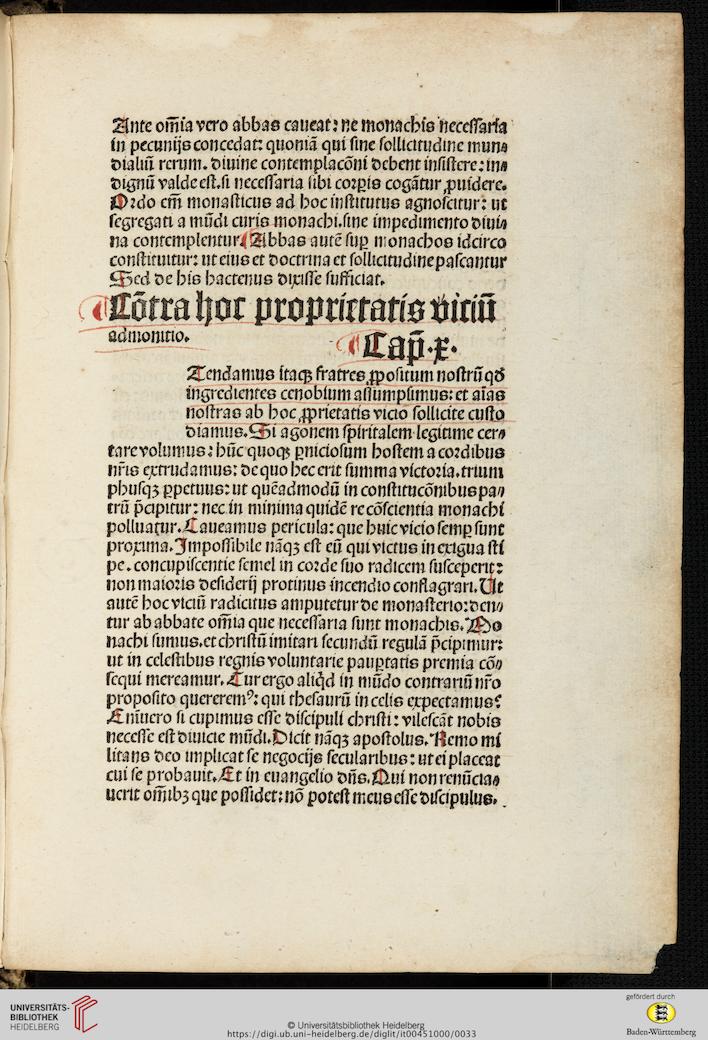 Ante om̅ia vero abbas caueat: ne monachis necessaria
in pecunijs concedat: quoniā qui sine sollicitudine mun⸗
dialiū rerum. diuine contemplacōni debent insistere: in⸗
dignū valde est. si necessaria sibi corꝑis cogātur ꝓuidere.
Ordo em̅ monasticus ad hoc institutus agnoscitur: ut
segregati a mūdi curis monachi. sine impedimento diui⸗
na contemplentur. Abbas autē suꝑ monachos idcirco
constituitur: ut eius et doctrina et sollicitudine pascantur
Sed de his hactenus dixisse sufficiat.
Cōtra hoc proprietatis viciū
admonitio.
Cap̄.x.
Tendamus itaqꝫ fratres ꝓpositum nostrū qd̄
ingredientes cenobium assumpsimus: et aīas
nostras ab hoc ꝓprietatis vicio sollicite custo
diamus. Si agonem spiritalem legitime cer⸗
tare volumus: hūc quoqꝫ ꝑniciosum hostem a cordibus
nr̄is extrudamus: de quo hec erit summa victoria. trium
phusqꝫ ꝑpetuus: ut quēadmodū in constitucōnibus pa⸗
trū p̄cipitur: nec in minima quidē re cōscientia monachi
polluatur. Caueamus pericula: que huic vicio semꝑ sunt
proxima. Impossibile nāqꝫ est eū qui victus in exigua sti
pe. concupiscentie semel in corde suo radicem susceperit:
non maioris desiderij protinus incendio conflagrari. Ut
autē hoc viciū radicitus amputetur de monasterio: den⸗
tur ab abbate om̅ia que necessaria sunt monachis. Mo
nachi sumus. et christū imitari secundū regulā p̄cipimur:
ut in celestibus regnis voluntarie pauꝑtatis premia cō⸗
sequi mereamur. Cur ergo aliq̇d in mūdo contrariū nr̄o
proposito quererem⁹: qui thesaurū in celis expectamus?
Enīuero si cupimus esse discipuli christi: vilescāt nobis
necesse est diuicie mūdi. Dicit nāqꝫ apostolus. Nemo mi
litans deo implicat se negocijs secularibus: ut ei placeat
cui se probauit. Et in euangelio dn̄s. Qui non renūcia⸗
uerit om̅ibꝫ que possidet: nō potest meus esse discipulus.
UNIVERSITÄTS-
BIBLIOTHEK
HEIDELBERG
© Universitätsbibliothek Heidelberg
https://digi.ub.uni-heidelberg.de/diglit/it00451000/0033
gefördert durch
Baden-Württemberg